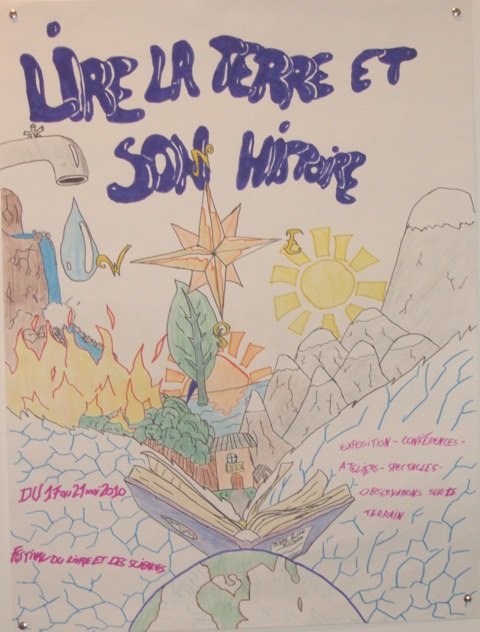 LIRE LA TERRE ET
SON HISTOIRE
N
W
E
S
EXPOSITION - CONFÉRENCES -
ATELIERS - SPECTACLES -
OBSERVATIONS SUR LE
TERRAIN
DU 17 au 21 mai 2010
FESTIVAL DU LIVRE ET DES SCIENCES